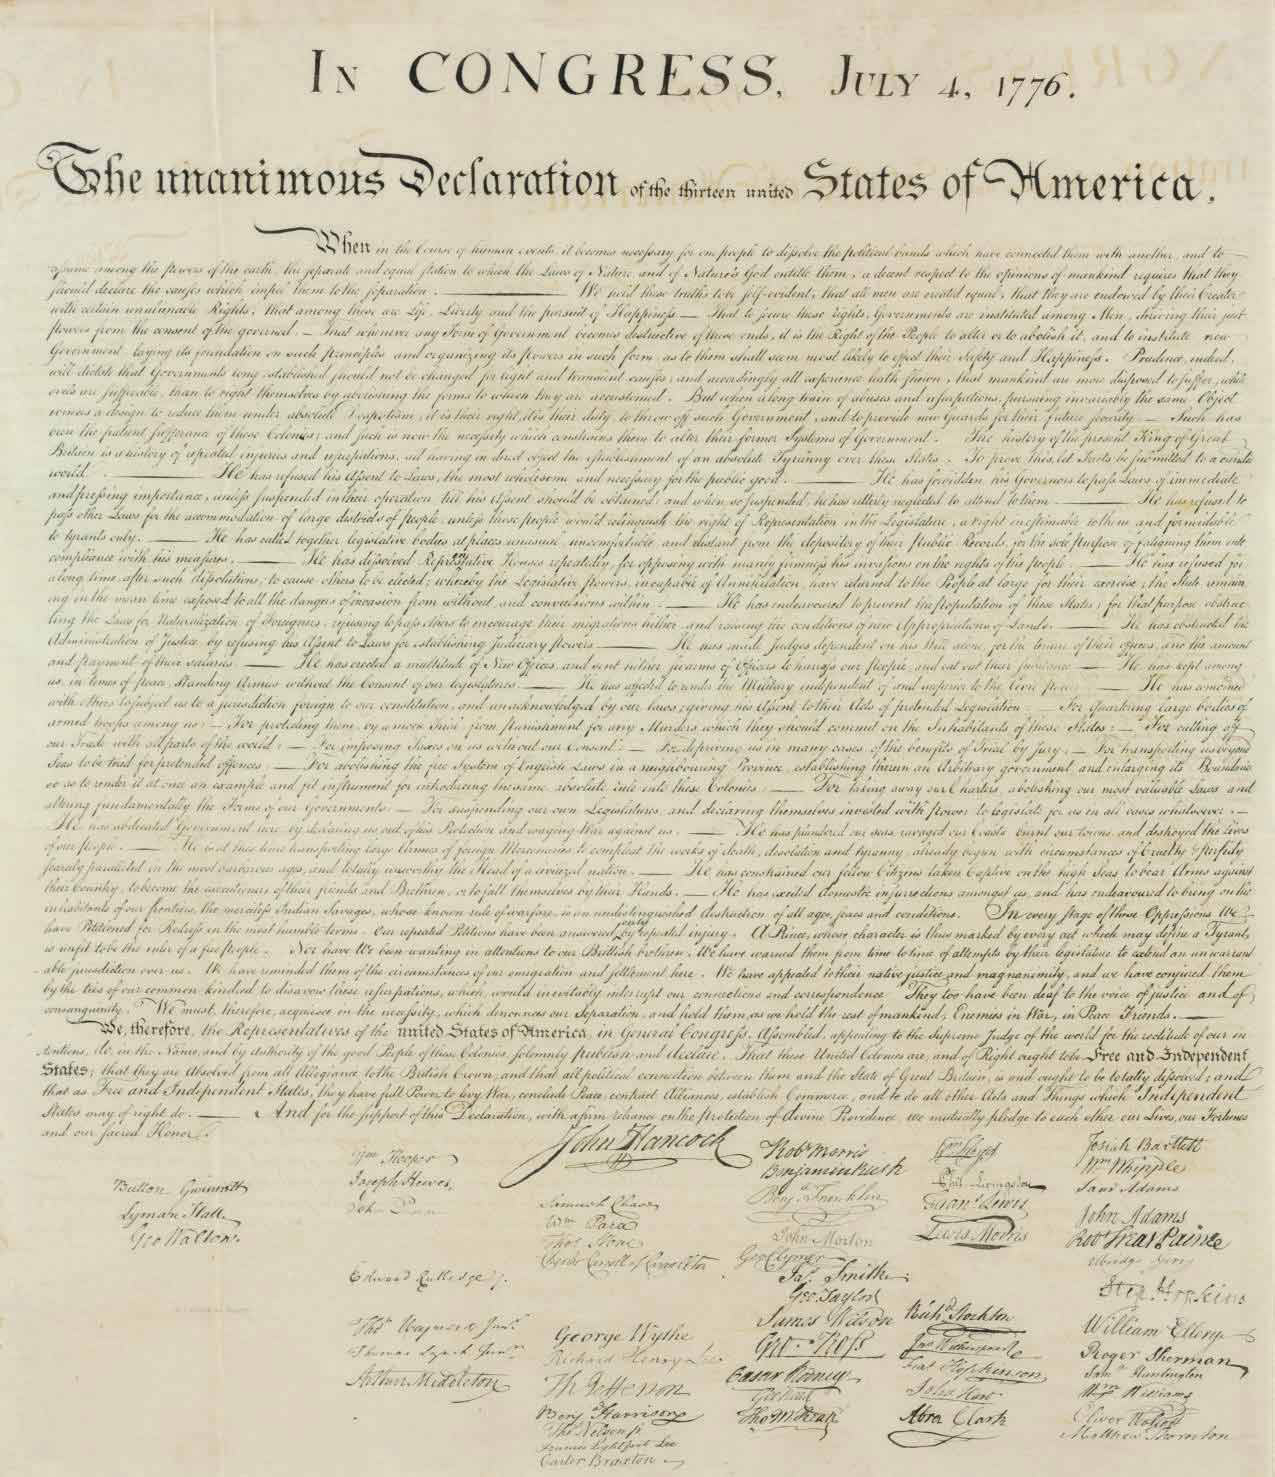 In CONGRESS, July 4, 1776.
The unanimous Declaration of the thirteen united States of America,
When in the Course of human events, it becomes necessary for one people to dissolve the political bands which have connected them with another, and to
assume among the powers of the earth, the separate and equal station to which the Laws of Nature and of Nature's God entitle them, a decent respect to the opinions of mankind requires that they
should declare the causes which impel them to the separation. —— We hold these truths to be self-evident, that all men are created equal, that they are endowed by their Creator
with certain unalienable Rights, that among these are Life, Liberty and the pursuit of Happiness. — That to secure these rights, Governments are instituted among Men, deriving their just
powers from the consent of the governed. — That whenever any Form of Government becomes destructive of these ends, it is the Right of the People to alter or to abolish it, and to institute new
Government, laying its foundation on such principles and organizing its powers in such form, as to them shall seem most likely to effect their Safety and Happiness. Prudence, indeed,
will dictate that Governments long established should not be changed for light and transient causes; and accordingly all experience hath shewn, that mankind are more disposed to suffer, while
evils are sufferable, than to right themselves by abolishing the forms to which they are accustomed. But when a long train of abuses and usurpations, pursuing invariably the same Object
evinces a design to reduce them under absolute Despotism, it is their right, it is their duty, to throw off such Government, and to provide new Guards for their future security. — Such has
been the patient sufferance of these Colonies; and such is now the necessity which constrains them to alter their former Systems of Government. The history of the present King of Great
Britain is a history of repeated injuries and usurpations, all having in direct object the establishment of an absolute Tyranny over these States. To prove this, let Facts be submitted to a candid
world. —— He has refused his Assent to Laws, the most wholesome and necessary for the public good. —— He has forbidden his Governors to pass Laws of immediate
and pressing importance, unless suspended in their operation till his Assent should be obtained; and when so suspended, he has utterly neglected to attend to them. —— He has refused to
pass other Laws for the accommodation of large districts of people, unless those people would relinquish the right of Representation in the Legislature, a right inestimable to them and formidable
to tyrants only. —— He has called together legislative bodies at places unusual, uncomfortable, and distant from the depository of their Public Records, for the sole purpose of fatiguing them into
compliance with his measures. —— He has dissolved Representative Houses repeatedly, for opposing with manly firmness his invasions on the rights of the people. —— He has refused for
a long time, after such dissolutions, to cause others to be elected; whereby the Legislative powers, incapable of Annihilation, have returned to the People at large for their exercise; the State remain
ing in the mean time exposed to all the dangers of invasion from without, and convulsions within. —— He has endeavoured to prevent the population of these States; for that purpose obstruc
ting the Laws for Naturalization of Foreigners; refusing to pass others to encourage their migrations hither, and raising the conditions of new Appropriations of Lands. —— He has obstructed the
Administration of Justice, by refusing his Assent to Laws for establishing Judiciary powers. —— He has made Judges dependent on his Will alone, for the tenure of their offices, and the amount
and payment of their salaries. —— He has erected a multitude of New Offices, and sent hither swarms of Officers to harrass our people, and eat out their substance. —— He has kept among
us, in times of peace, Standing Armies without the Consent of our legislatures. —— He has affected to render the Military independent of and superior to the Civil power. —— He has combined
with others to subject us to a jurisdiction foreign to our constitution, and unacknowledged by our laws; giving his Assent to their Acts of pretended Legislation: — For Quartering large bodies of
armed troops among us: — For protecting them, by a mock Trial, from punishment for any Murders which they should commit on the Inhabitants of these States: — For cutting off
our Trade with all parts of the world: — For imposing Taxes on us without our Consent: — For depriving us in many cases, of the benefits of Trial by jury: — For transporting us beyond
Seas to be tried for pretended offences: — For abolishing the free System of English Laws in a neighbouring Province, establishing therein an Arbitrary government, and enlarging its Boundaries
so as to render it at once an example and fit instrument for introducing the same absolute rule into these Colonies: — For taking away our Charters, abolishing our most valuable Laws and
altering fundamentally the Forms of our Governments: — For suspending our own Legislatures, and declaring themselves invested with power to legislate for us in all cases whatsoever. —
He has abdicated Government here, by declaring us out of his Protection and waging War against us. —— He has plundered our seas, ravaged our Coasts, burnt our towns, and destroyed the lives
of our people. —— He is at this time transporting large Armies of foreign Mercenaries to compleat the works of death, desolation and tyranny, already begun with circumstances of Cruelty & perfidy
scarcely paralleled in the most barbarous ages, and totally unworthy the Head of a civilized nation. —— He has constrained our fellow Citizens taken Captive on the high Seas to bear Arms against
their Country, to become the executioners of their friends and Brethren, or to fall themselves by their Hands. —— He has excited domestic insurrections amongst us, and has endeavoured to bring on the
inhabitants of our frontiers, the merciless Indian Savages, whose known rule of warfare, is an undistinguished destruction of all ages, sexes and conditions. In every stage of these Oppressions We
have Petitioned for Redress in the most humble terms: Our repeated Petitions have been answered only by repeated injury. A Prince, whose character is thus marked by every act which may define a Tyrant,
is unfit to be the ruler of a free people. Nor have We been wanting in attentions to our Brittish brethren. We have warned them from time to time of attempts by their legislature to extend an unwarrant
able jurisdiction over us. We have reminded them of the circumstances of our emigration and settlement here. We have appealed to their native justice and magnanimity, and we have conjured them
by the ties of our common kindred to disavow these usurpations, which, would inevitably interrupt our connections and correspondence. They too have been deaf to the voice of justice and of
consanguinity. We must, therefore, acquiesce in the necessity, which denounces our Separation, and hold them, as we hold the rest of mankind, Enemies in War, in Peace Friends. ——
We, therefore, the Representatives of the united States of America, in General Congress, Assembled, appealing to the Supreme Judge of the world for the rectitude of our in
tentions, do, in the Name, and by Authority of the good People of these Colonies, solemnly publish and declare, That these United Colonies are, and of Right ought to be Free and Independent
States; that they are Absolved from all Allegiance to the British Crown, and that all political connection between them and the State of Great Britain, is and ought to be totally dissolved; and
that as Free and Independent States, they have full Power to levy War, conclude Peace, contract Alliances, establish Commerce, and to do all other Acts and Things which Independent
States may of right do. —— And for the support of this Declaration, with a firm reliance on the protection of divine Providence, we mutually pledge to each other our Lives, our Fortunes
and our sacred Honor.
John Hancock
Button Gwinnett
Lyman Hall
Geo Walton.
Wm Hooper
Joseph Hewes,
John Penn
Edward Rutledge /.
Thos Heyward Junr.
Thomas Lynch Junr.
Arthur Middleton
Samuel Chase
Wm. Paca
Thos. Stone
Charles Carroll of Carrollton
George Wythe
Richard Henry Lee
Th Jefferson
Benj Harrison
Thos Nelson jr.
Francis Lightfoot Lee
Carter Braxton
Robt Morris
Benjamin Rush
Benja Franklin
John Morton
Geo Clymer
Jas. Smith
Geo. Taylor
James Wilson
Geo. Ross
Caesar Rodney
Geo Read
Tho M:Kean
Wm Floyd
Phil. Livingston
Frans. Lewis
Lewis Morris
Richd. Stockton
Jno Witherspoon
Fras. Hopkinson
John Hart
Abra Clark
Josiah Bartlett
Wm Whipple
Saml Adams
John Adams
Robt Treat Paine
Elbridge Gerry
Step. Hopkins
William Ellery
Roger Sherman
Saml Huntington
Wm Williams
Oliver Wolcott
Matthew Thornton